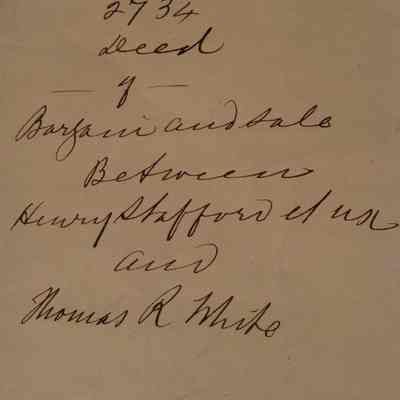 2734
Deed
— of —
Bargain and Sale
Between
Henry Stafford et ux
and
Thomas R White